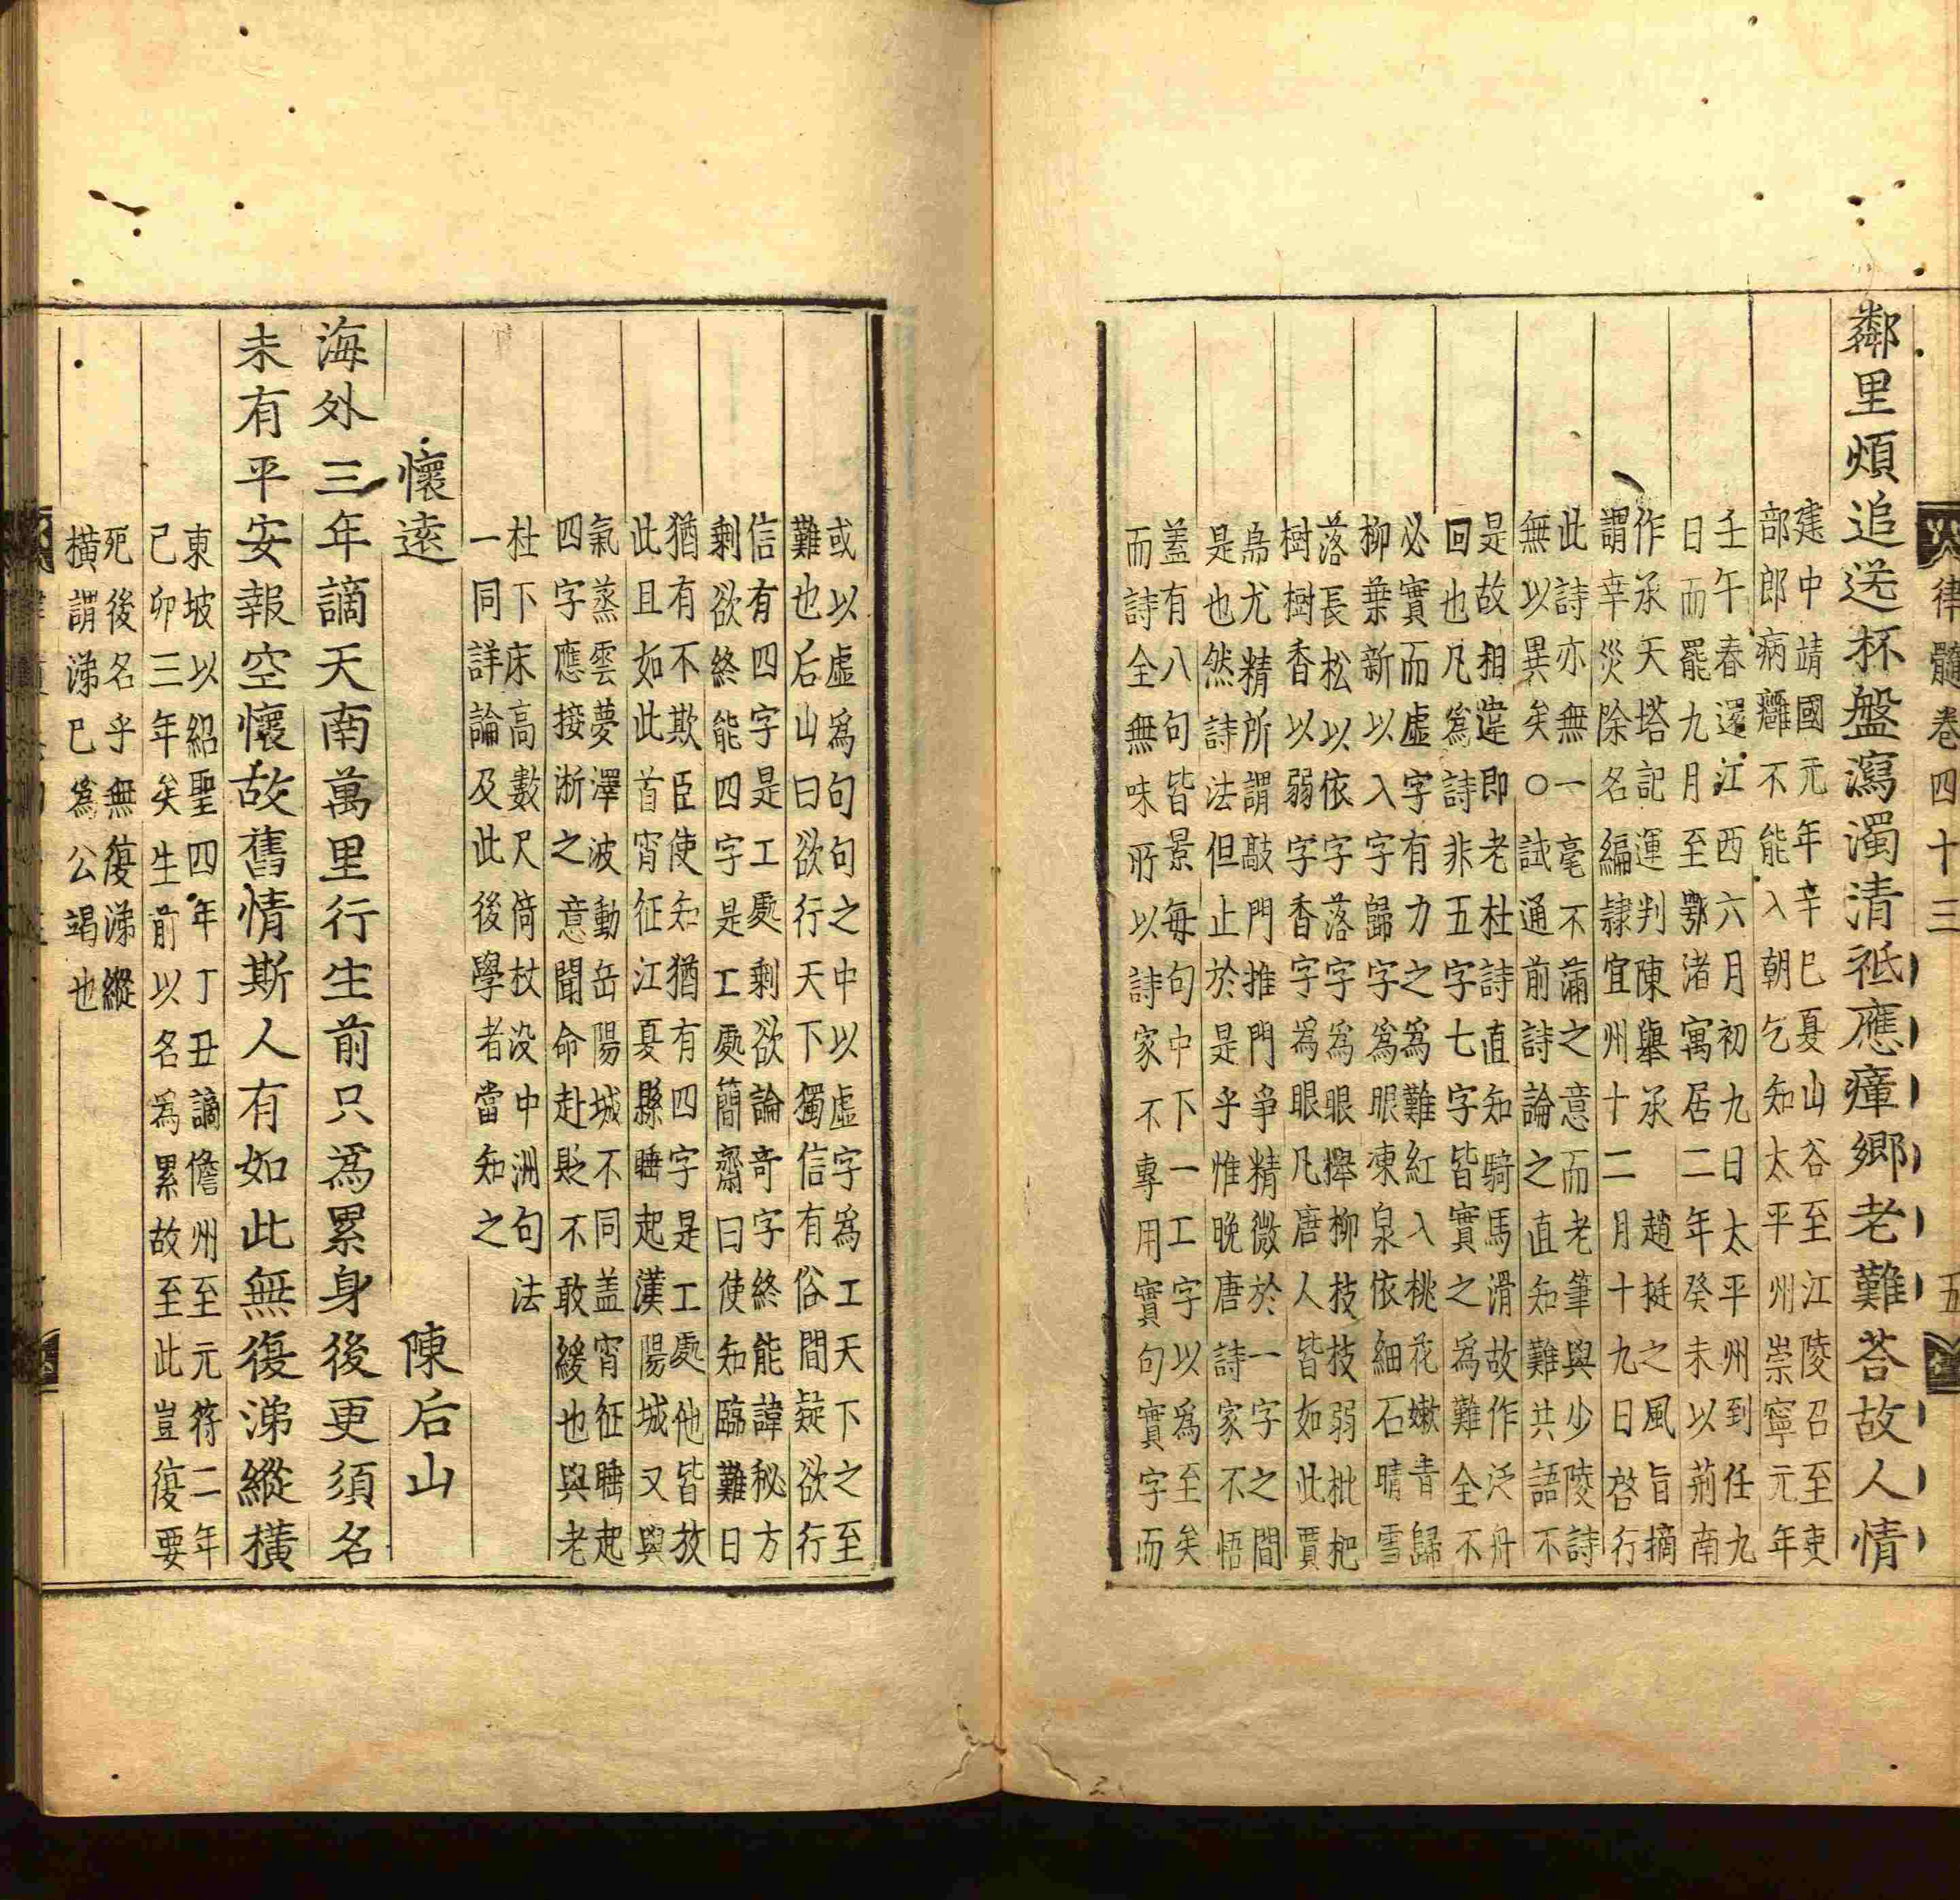 律髓卷四十三
五
鄰里煩追送杯盤瀉濁清祗應瘴鄉老難荅故人情
建中靖國元年辛巳夏山谷至江陵召至吏
部郎病癰不能入朝乞知太平州崇寧元年
壬午春還江西六月初九日太平州到任九
日而罷九月至鄂渚寓居二年癸未以荊南
作承天塔記運判陳舉承趙挺之風旨摘
謂幸災除名編隸宜州十二月十九日啓行
此詩亦無一毫不滿之意而老筆與少陵詩
無以異矣○試通前詩論之直知難共語不
是故相違即老杜詩直知騎馬滑故作泛舟
回也凡爲詩非五字七字皆實之爲難全不
必實而虛字有力之爲難紅入桃花嫩青歸
柳葉新以入字歸字爲眼凍泉依細石晴雪
落長松以依字落字爲眼櫸柳枝枝弱枇杷
樹樹香以弱字香字爲眼凡唐人皆如此賈
島尤精所謂敲門推門爭精微於一字之間
是也然詩法但止於是乎惟晚唐詩家不悟
蓋有八句皆景每句中下一工字以爲至矣
而詩全無味所以詩家不專用實句實字而
或以虛爲句句之中以虛字爲工天下之至
難也后山曰欲行天下獨信有俗間疑欲行
信有四字是工處剩欲論奇字終能諱秘方
剩欲終能四字是工處簡齋曰使知臨難日
猶有不欺臣使知猶有四字是工處他皆放
此且如此首宵征江夏縣睡起漢陽城又與
氣蒸雲夢澤波動岳陽城不同盖宵征睡起
四字應接淅之意聞命赴貶不敢緩也與老
杜下床高數尺倚杖没中洲句法
一同詳論及此後學者當知之
懷遠
陳后山
海外三年謫天南萬里行生前只爲累身後更須名
未有平安報空懷故舊情斯人有如此無復涕縱橫
東坡以紹聖四年丁丑謫儋州至元符二年
己卯三年矣生前以名爲累故至此豈復要
死後名乎無復涕縱
橫謂涕巳爲公竭也